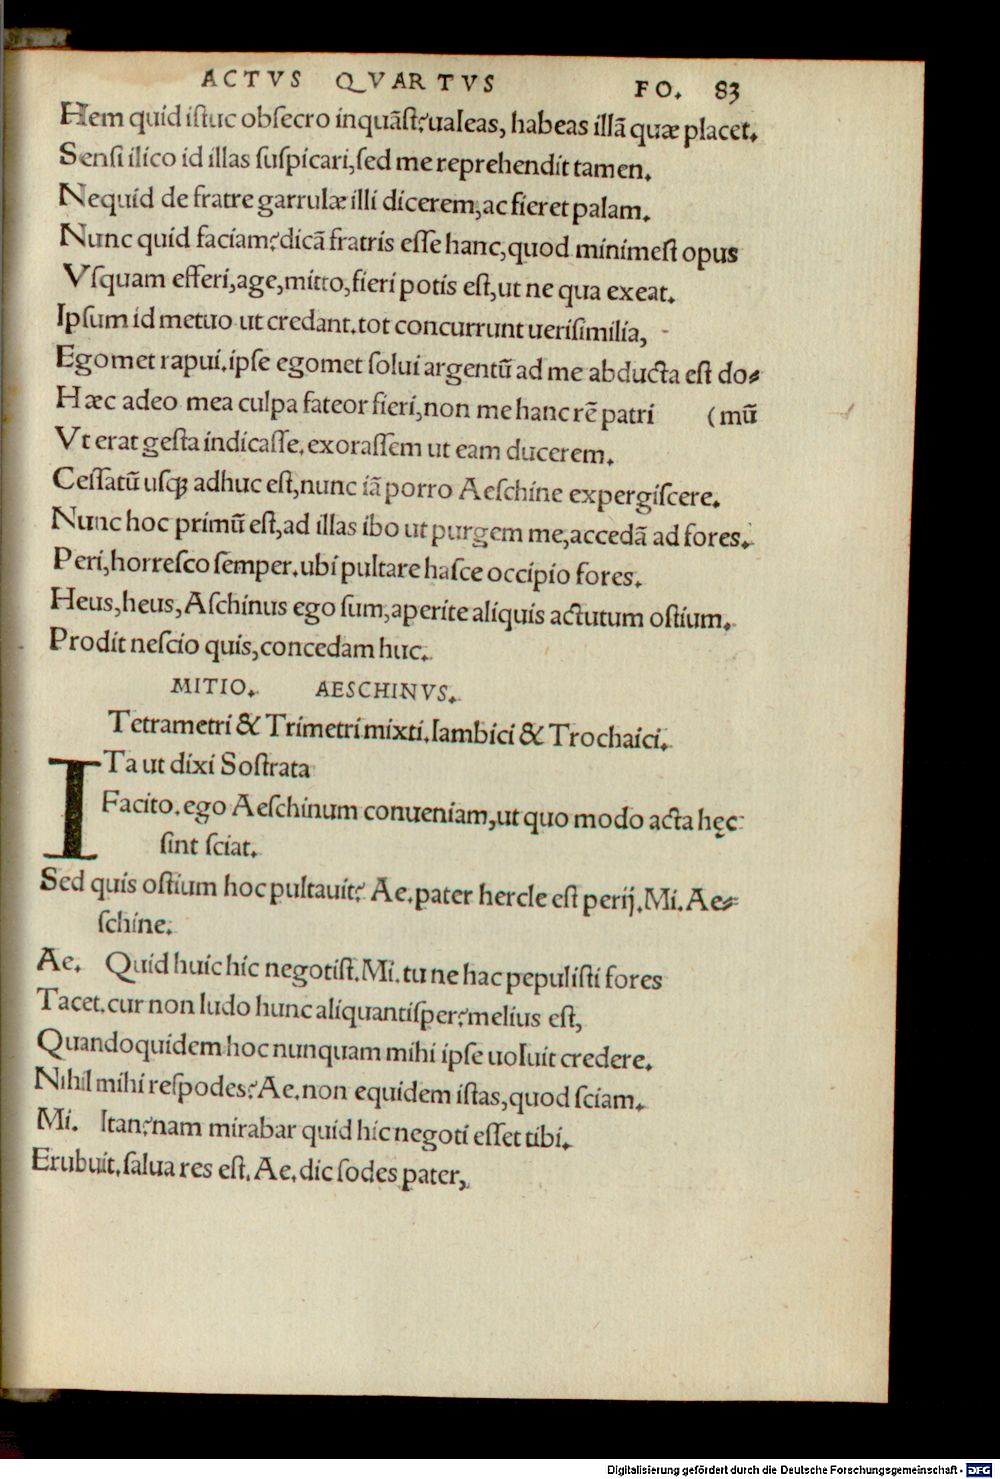 ACTVS QVARTVS FO. 83
Hem quid istuc obsecro inquāst? ualeas, habeas illā quæ placet.
Sensi ilico id illas suspicari, sed me reprehendit tamen.
Nequid de fratre garrulæ illi dicerem, ac fieret palam.
Nunc quid faciam? dicā fratris esse hanc, quod minimest opus
Vsquam efferi, age, mitto, fieri potis est, ut ne qua exeat.
Ipsum id metuo ut credant. tot concurrunt uerisimilia,
Egomet rapui. ipse egomet solui argentū ad me abducta est do-
Hæc adeo mea culpa fateor fieri, non me hanc rē patri (mū
Vt erat gesta indicasse. exorassem ut eam ducerem.
Cessatū usqꝫ adhuc est, nunc iā porro Aeschine expergiscere.
Nunc hoc primū est, ad illas ibo ut purgem me, accedā ad fores.
Peri, horresco semper. ubi pultare hasce occipio fores.
Heus, heus, Aschinus ego sum, aperite aliquis actutum ostium.
Prodit nescio quis, concedam huc.
MITIO. AESCHINVS.
Tetrametri & Trimetri mixti. Iambici & Trochaici.
ITa ut dixi Sostrata
Facito. ego Aeschinum conueniam, ut quo modo acta hęc
sint sciat.
Sed quis ostium hoc pultauit? Ae. pater hercle est perij. Mi. Ae-
schine.
Ae. Quid huic hic negotist. Mi. tu ne hac pepulisti fores
Tacet. cur non ludo hunc aliquantisper? melius est,
Quandoquidem hoc nunquam mihi ipse uoluit credere.
Nihil mihi respodes? Ae. non equidem istas, quod sciam.
Mi. Itan? nam mirabar quid hic negoti esset tibi.
Erubuit. salua res est. Ae. dic sodes pater,
Digitalisierung gefördert durch die Deutsche Forschungsgemeinschaft - DFG